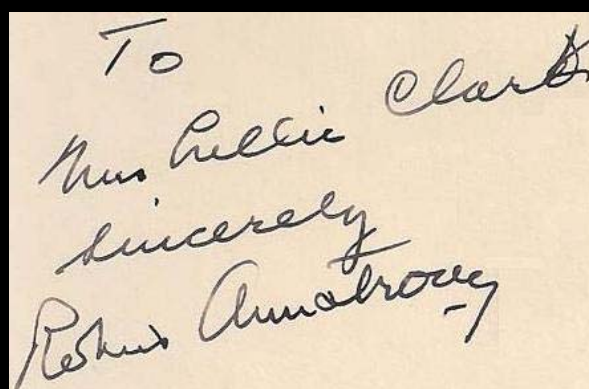 To
Mrs Lillie Clark
Sincerely
Armstrong